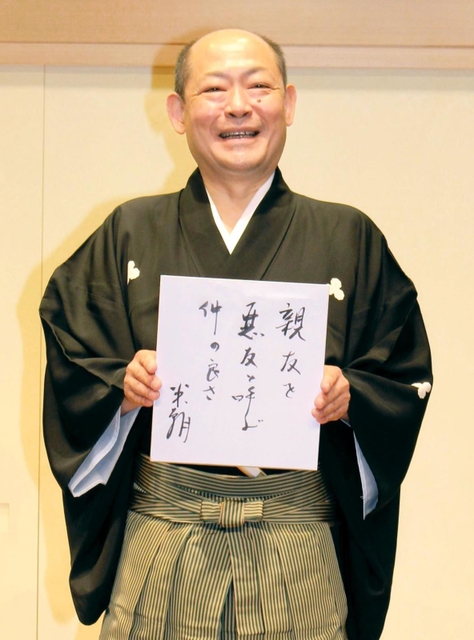 親友を
悪友と呼ぶ
仲の良さ
米朝